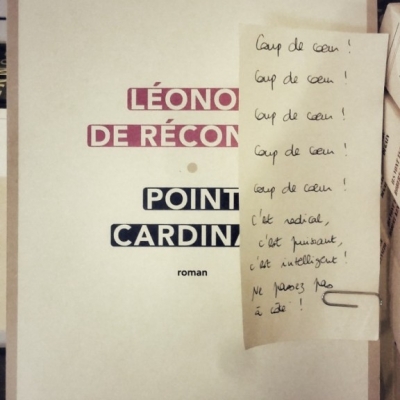 LÉONO
DE RÉCON
POINT
CARDINA
roman
Coup de cœur !
Coup de cœur !
Coup de cœur !
Coup de cœur !
coup de cœur !
C'est radical,
c'est puissant,
c'est intelligent !
Ne passez pas
à côté !